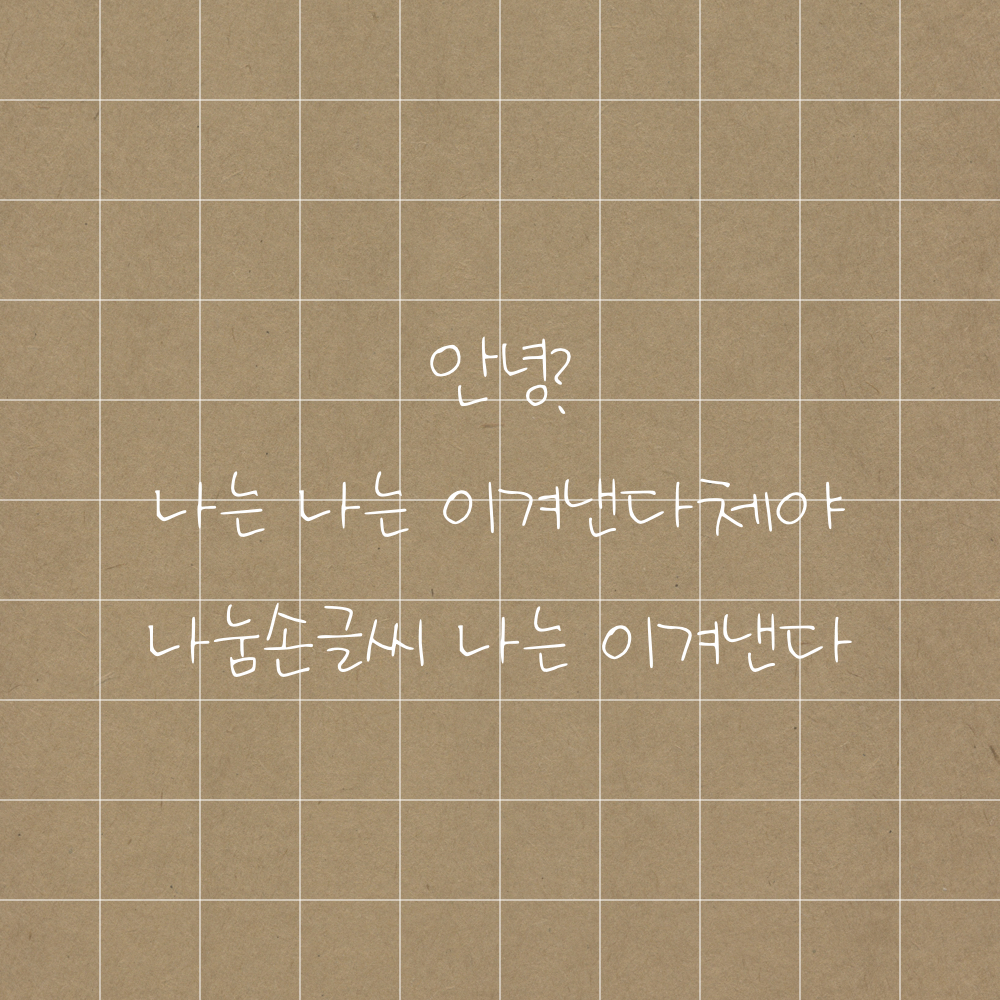 안녕?
나는 나는 이겨낸다체야
나눔손글씨 나는 이겨낸다